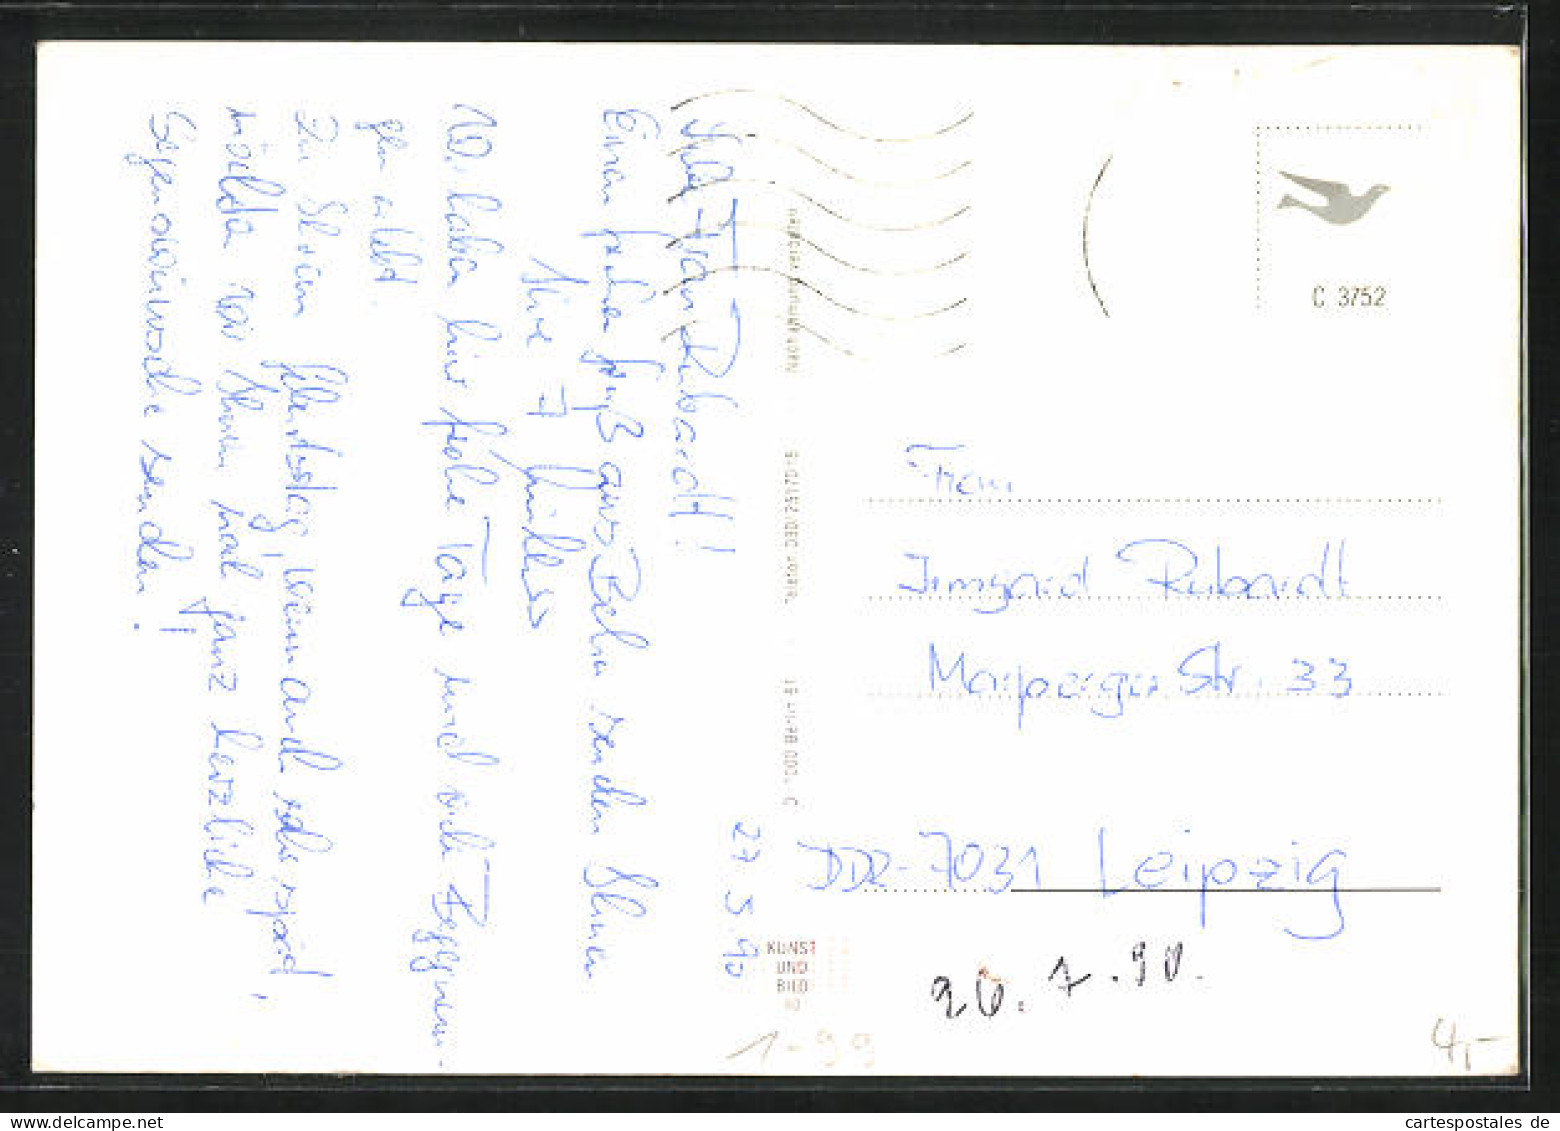 27.5.90
Liebe Frau Rubardt!
Einen frohen Gruß aus Berlin senden Ihnen
Ihre 7
Wir haben hier frohe Tage und viele Begegnun-
gen erlebt.
Zu Ihrem Geburtstag, wenn auch sehr spät,
möchten wir Ihnen mal ganz herzliche
Segenswünsche senden!
Nachahmung verboten
Telefon 030/
D 1000 Berlin 61
KUNST
UND
BILD
C 3752
Frau
Irmgard Rubardt
Marpergerstr. 33
DDR-7031 Leipzig
26.7.90.
1-99
4,-
cartespostales de